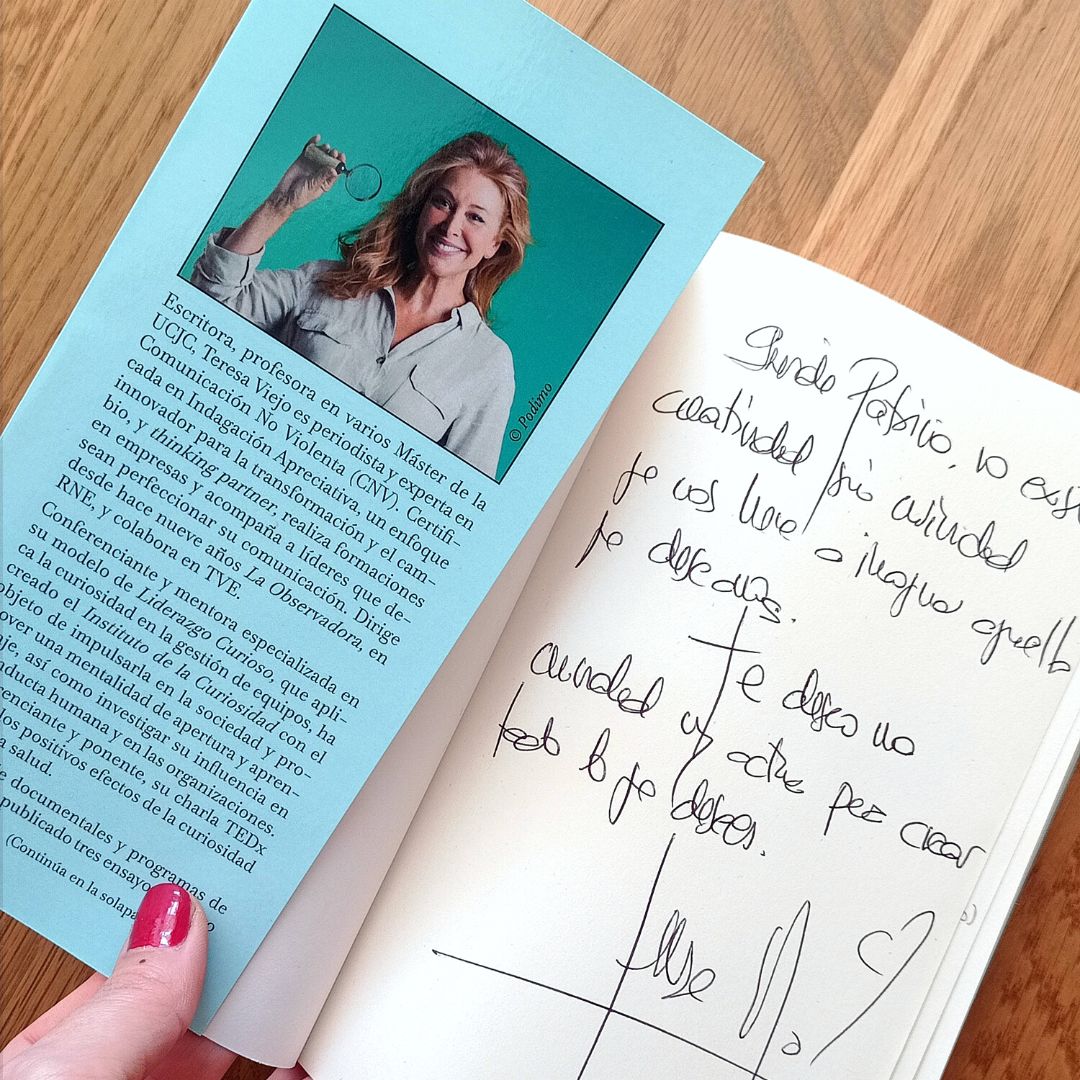 © Podimo
Escritora, profesora en varios Máster de la
UCJC, Teresa Viejo es periodista y experta en
Comunicación No Violenta (CNV). Certifi-
cada en Indagación Apreciativa, un enfoque
innovador para la transformación y el cam-
bio, y thinking partner, realiza formaciones
en empresas y acompaña a líderes que de-
sean perfeccionar su comunicación. Dirige
desde hace nueve años La Observadora, en
RNE, y colabora en TVE.
Conferenciante y mentora especializada en
su modelo de Liderazgo Curioso, que apli-
ca la curiosidad en la gestión de equipos, ha
creado el Instituto de la Curiosidad con el
objeto de impulsarla en la sociedad y pro-
over una mentalidad de apertura y apren-
aje, así como investigar su influencia en
nducta humana y en las organizaciones.
renciante y ponente, su charla TEDx
los positivos efectos de la curiosidad
a salud.
e documentales y programas de
publicado tres ensayo
(Continúa en la solapa
Patricia, no
creatividad sin
que nos lleve a imaginar aquello
que deseamos.
Te deseo
curiosidad y
todo lo que desees.